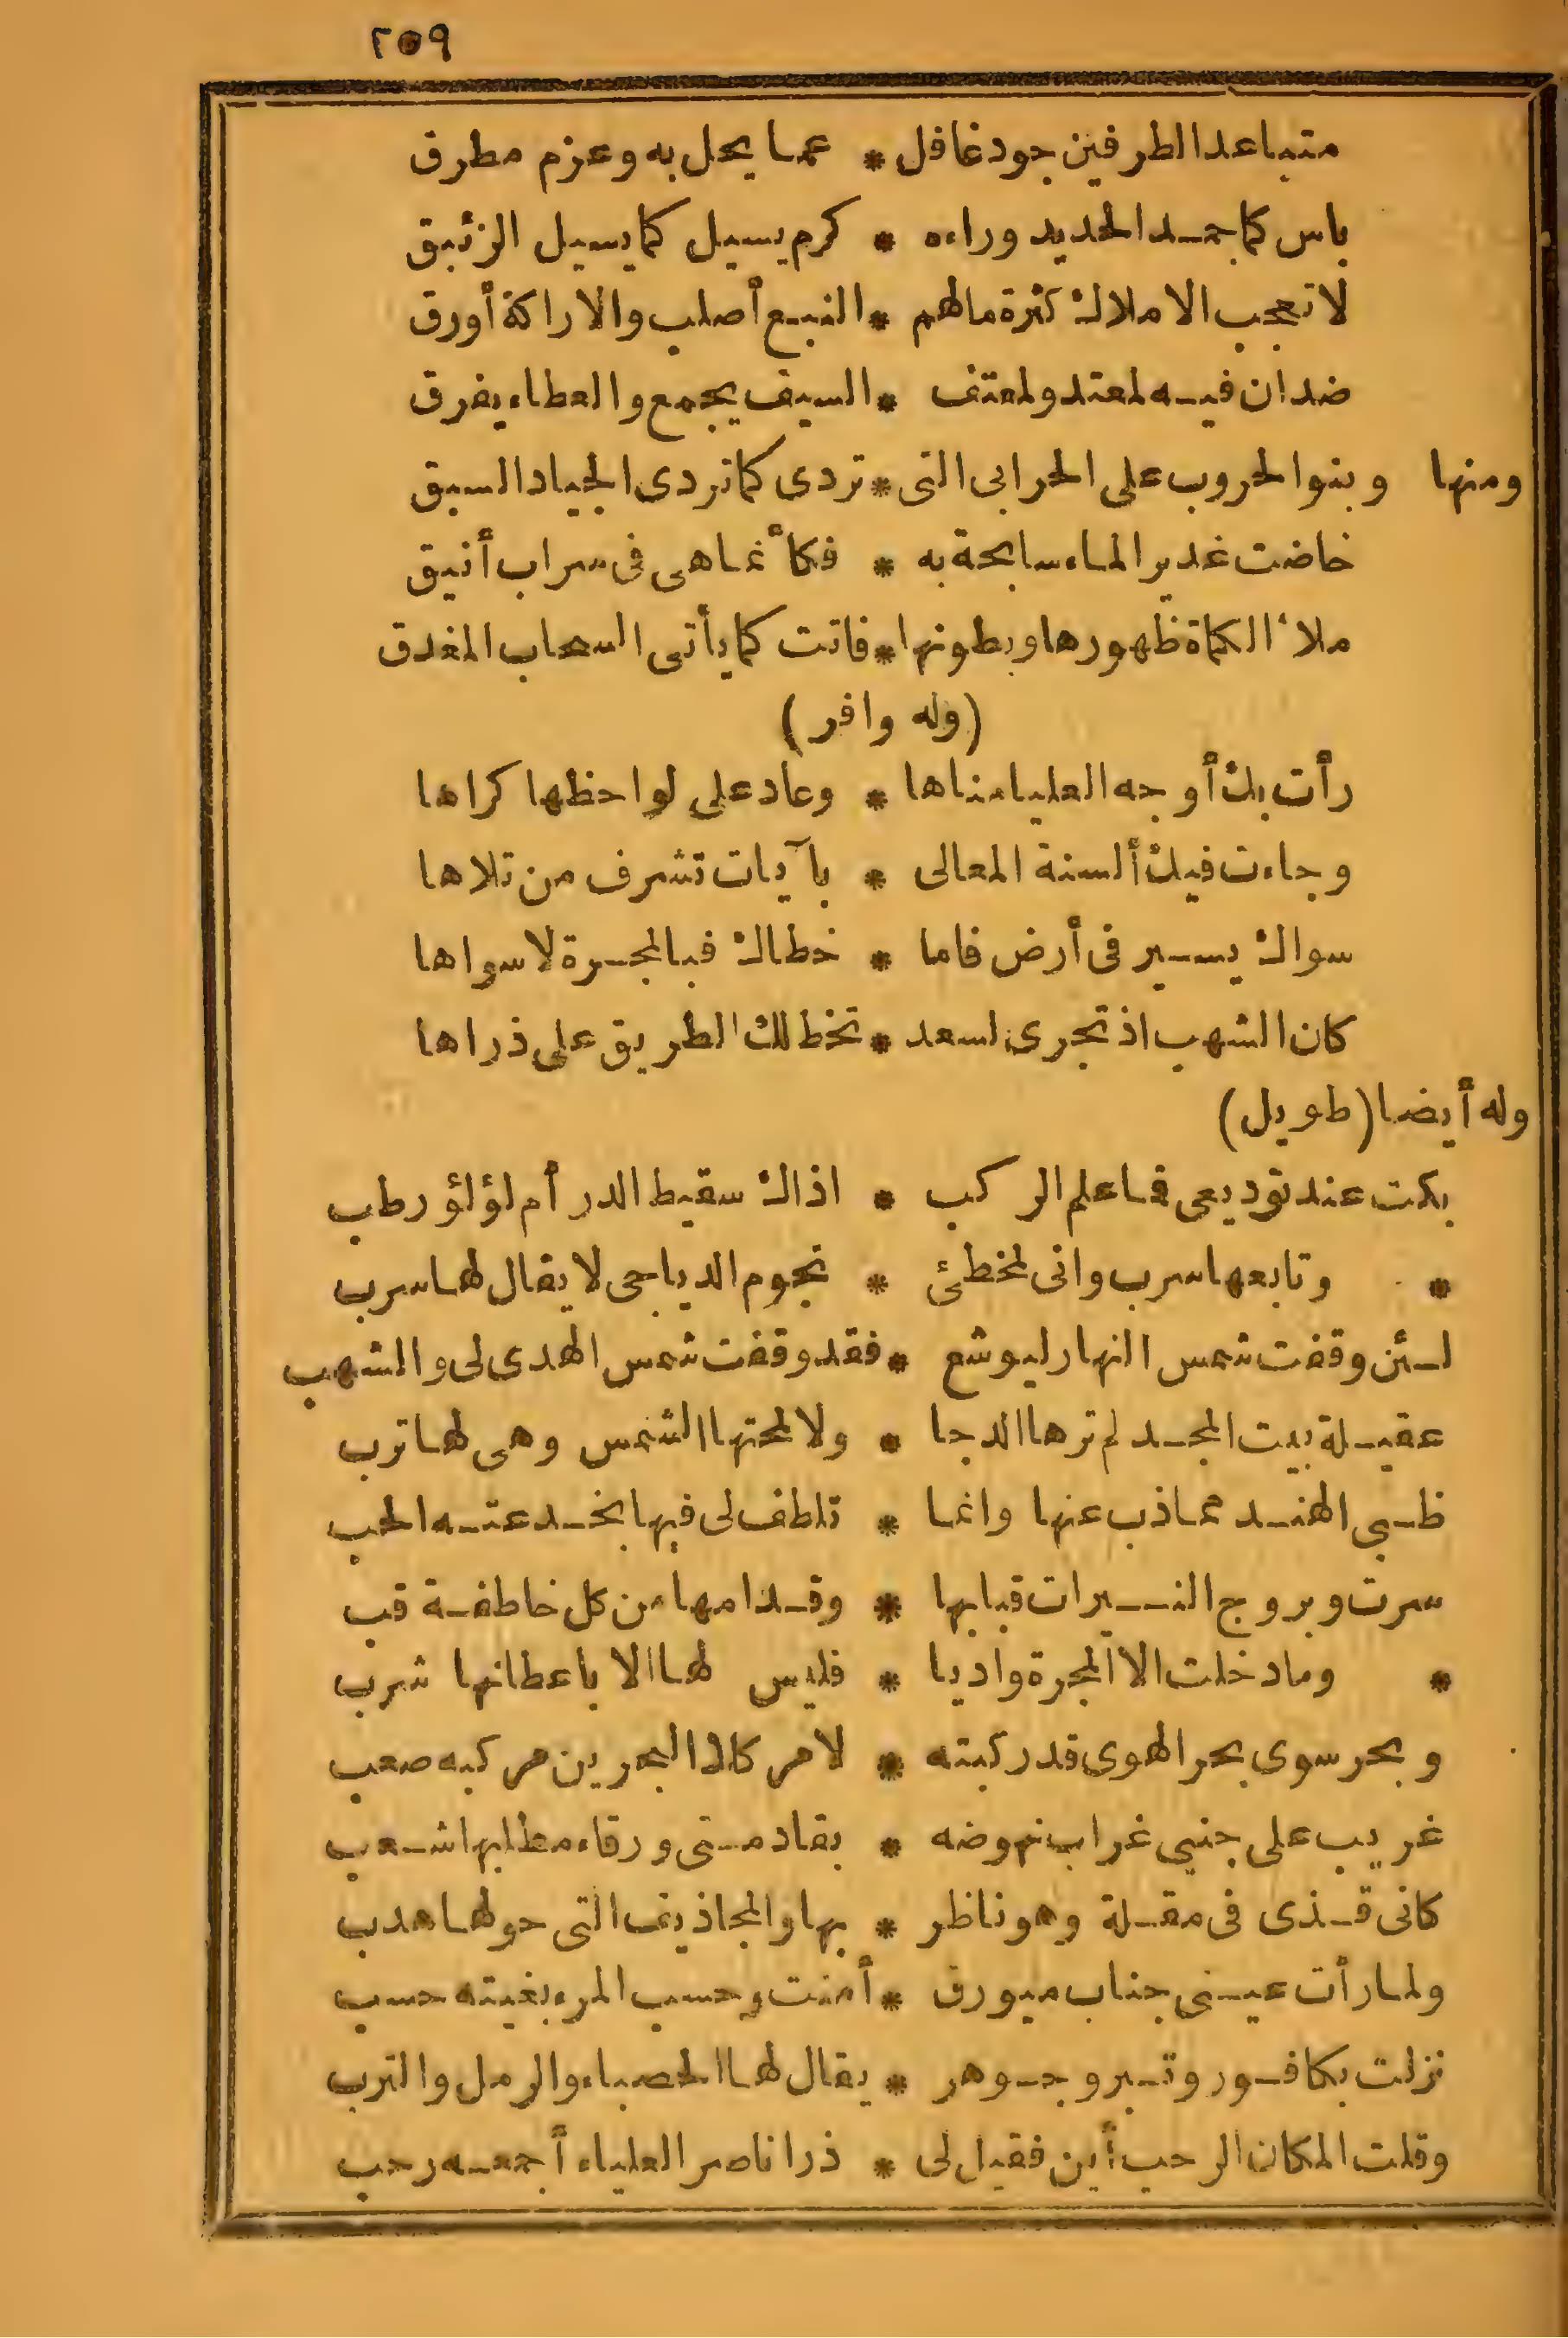 ٢٥٩
متباعد الطرفين جود غافل * عما يحل به وعزم مطرق
باس كما جمد الحديد وراءه * كرم يسيل كما يسيل الزئبق
لا تعجب الاملاك كثرة مالهم * النبع أصلب والاراكة أورق
ضدان فيه لمعتد ولمعتف * السيف يجمع والعطاء يفرق
ومنها وبنوا الحروب على الحرابى التى * تردى كما تردى الجياد السبق
خاضت غدير الماء سابحة به * فكأنما هى فى سراب أنيق
ملأ الكماة ظهورها وبطونها * فاتت كما يأتى السحاب المغدق
(وله وافر)
رأت بك أوجه العليا مناها * وعاد على لواحظها كراها
وجاءت فيك ألسنة المعالى * بآيات تشرف من تلاها
سواك يسير فى أرض فاما * خطاك فبالمجرة لا سواها
كان الشهب اذ تجرى لسعد * تخط لك الطريق على ذراها
وله أيضا (طويل)
بكت عند توديعى فما علم الركب * اذاك سقيط الدر أم لؤلؤ رطب
* وتابعها سرب وانى لمخطئ * نجوم الدياجى لا يقال لها سرب
لئن وقفت شمس النهار ليوشع * فقد وقفت شمس الهدى لى والشهب
عقيلة بيت المجد لم ترها الدجا * ولا لمحتها الشمس وهى لها ترب
ظبى الهند مما ذب عنها وانما * تلطف لى فيها بخدعته الحب
سرت وبروج النيرات قبابها * وقدامها من كل خاطفة قب
* وما دخلت الا المجرة واديا * فليس لها الا باعطانها شرب
وبحر سوى بحر الهوى قد ركبته * لامر كلا البحرين مركبه صعب
غريب على جنبى غراب نهوضه * بقادمتى ورقاء مطلبها شعب
كانى قذى فى مقلة وهو ناظر * بها والمجاذيف التى حولها هدب
ولما رأت عينى جناب ميورق * أمنت وحسب المرء بغيته حسب
نزلت بكافور وتبر وجوهر * يقال لها الحصباء والرمل والترب
وقلت المكان الرحب أين فقيل لى * ذرا ناصر العلياء أجمعه رحب